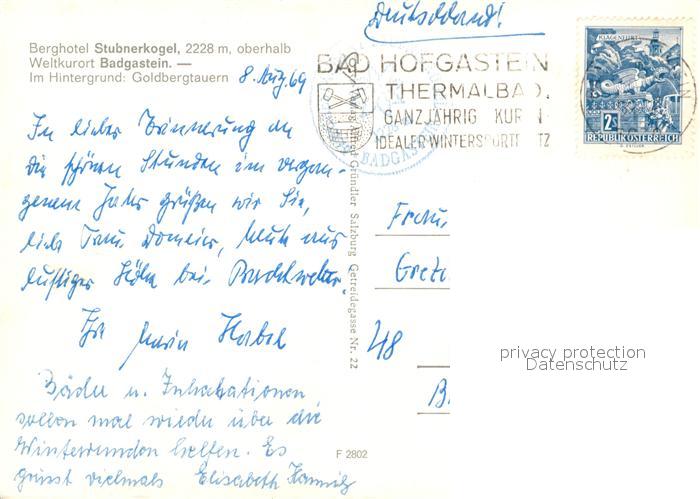 Berghotel Stubnerkogel, 2228 m, oberhalb
Weltkurort Badgastein. —
Im Hintergrund: Goldbergtauern
8. Aug. 69
Deutschland!
BAD HOFGASTEIN
THERMALBAD,
GANZJÄHRIG KUR
IDEALER WINTERSPORT TZ
BADGASTEIN
KLAGENFURT
2S
REPUBLIK ÖSTERREICH
In lieber Erinnerung an
die schönen Stunden im vergan-
genen Jahr grüßen wir Sie,
liebe Frau Domeier, heute aus
luftiger Höhe bei Prachtwetter.
Ihr
Bäder u. Inhalationen
sollen mal wieder über die
Winterrunden helfen. Es
grüsst vielmals Elisabeth
Gründler Salzburg Getreidegasse Nr. 22
F 2802
Frau
Gret
48
B.
privacy protection
Datenschutz